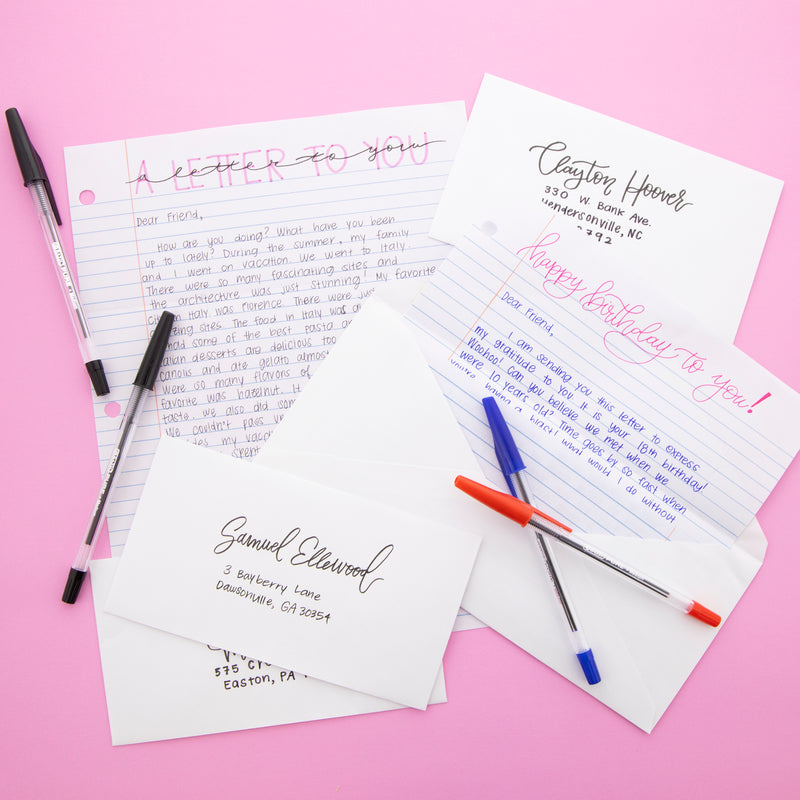 A LETTER TO YOU
a letter to you
Dear Friend,
How are you doing? What have you been
up to lately? During the summer, my family
and I went on vacation. We went to Italy.
There were so many fascinating sites and
the architecture was just stunning! My favorite
in Italy was Florence. There were just
sites. The food in Italy was
had some of the best pasta
desserts are delicious too
canolis and ate gelato almost
were so many flavors of
favorite was hazelnut.
taste. We also did som
We couldn't pass up
my vacat
spent
Clayton Hoover
330 W. Bank Ave.
Hendersonville, NC
792
happy birthday to you!
Dear Friend,
I am sending you this letter to express
my gratitude to you. It is your 18th birthday!
Woohoo! Can you believe we met when we
were 10 years old? Time goes by so fast when
you're having a blast! What would I do without
Samuel Ellewood
3 Bayberry Lane
Dawsonville, GA 30354
575
Easton, PA